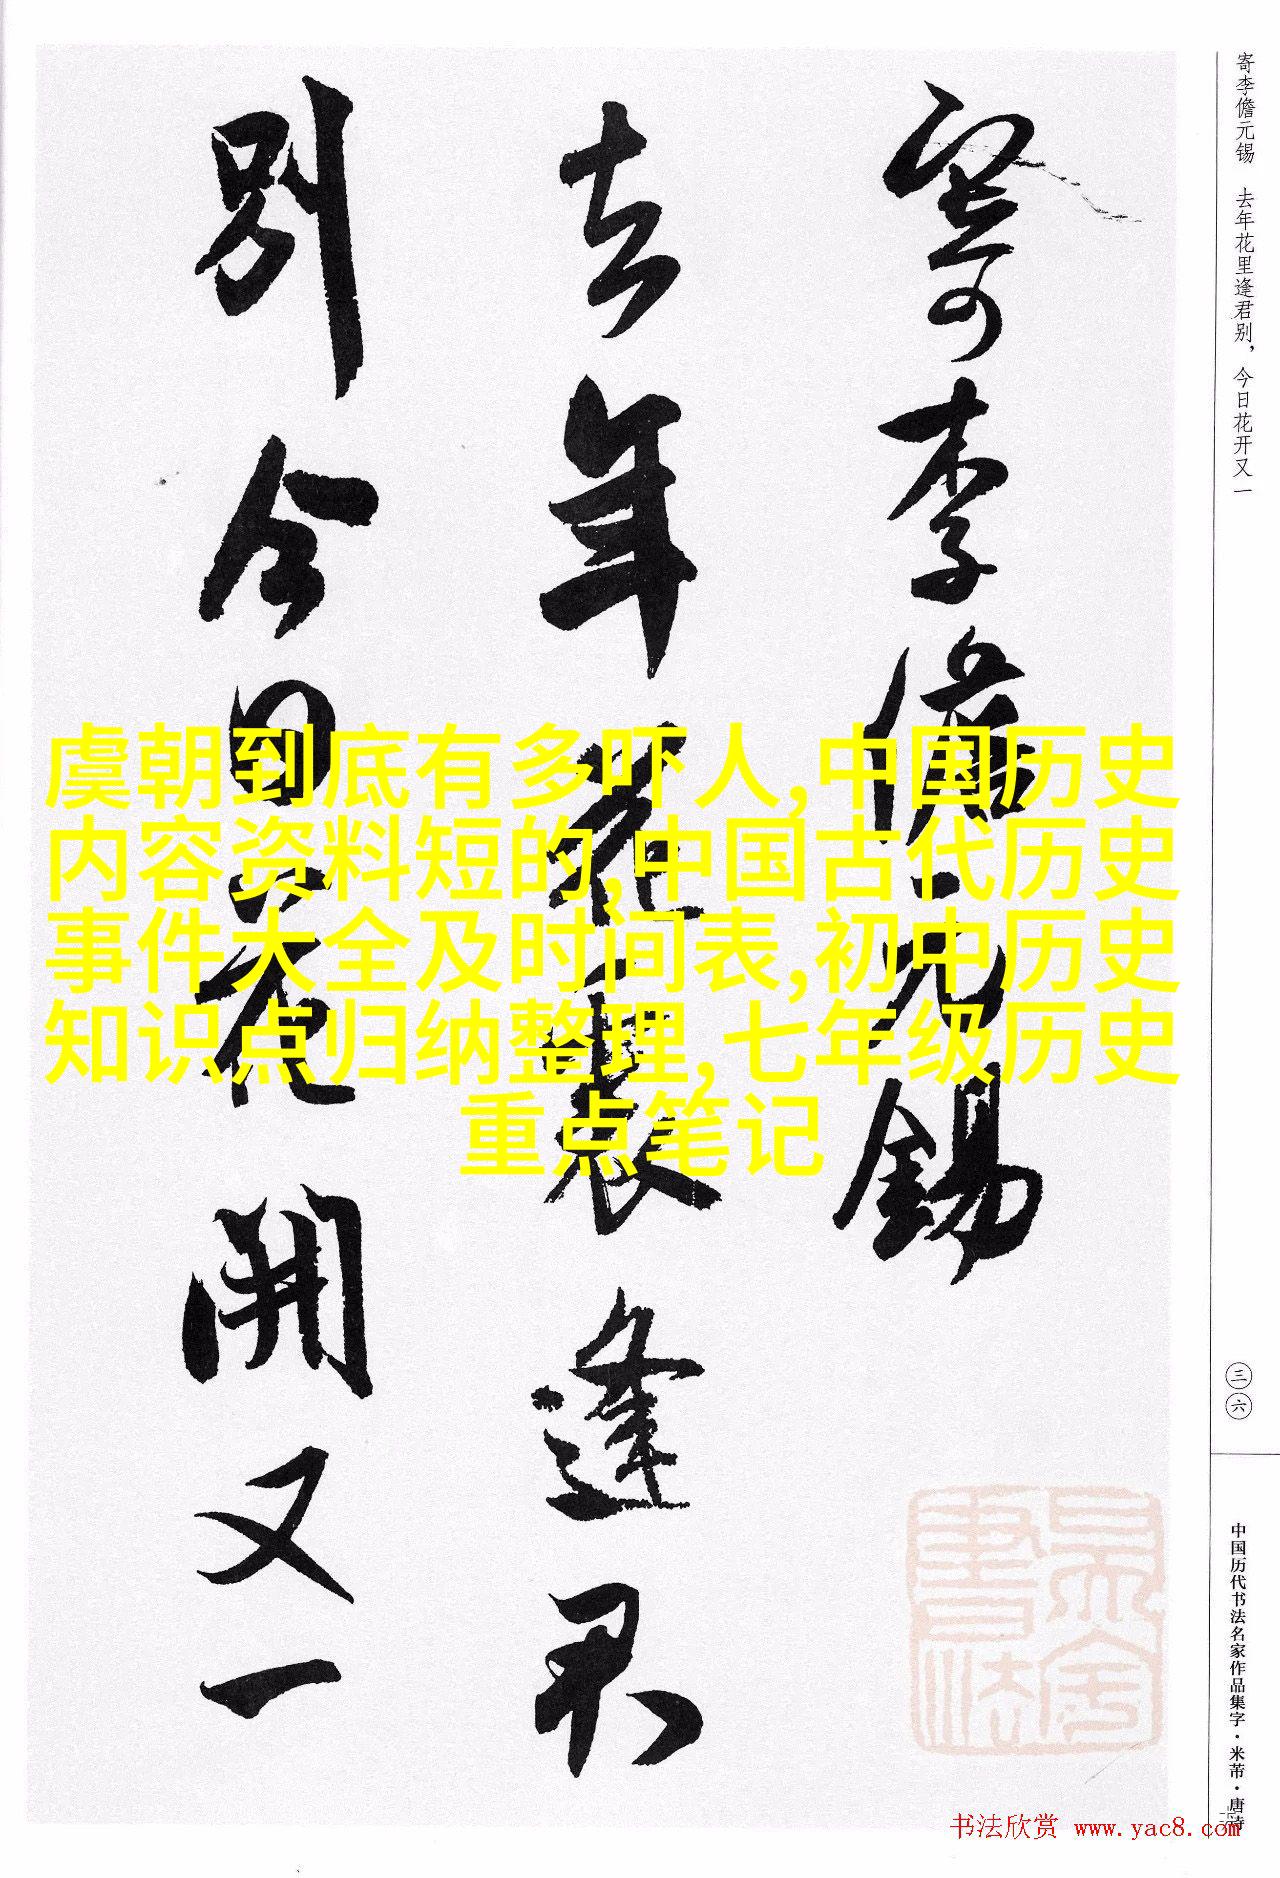 寄李儋元锡 去年花里逢君别，今日花开又一
寄李儋元錫
去年花裏逢君
別今日花開又一
虞朝到底有多吓人,中国历史
内容资料短的,中国古代历史
事件大全及时间表,初中历史
知识点归纳整理,七年级历史
重点笔记
三六
中国历代书法名家作品集字·米芾·唐诗
书法欣赏 www.yac8.com